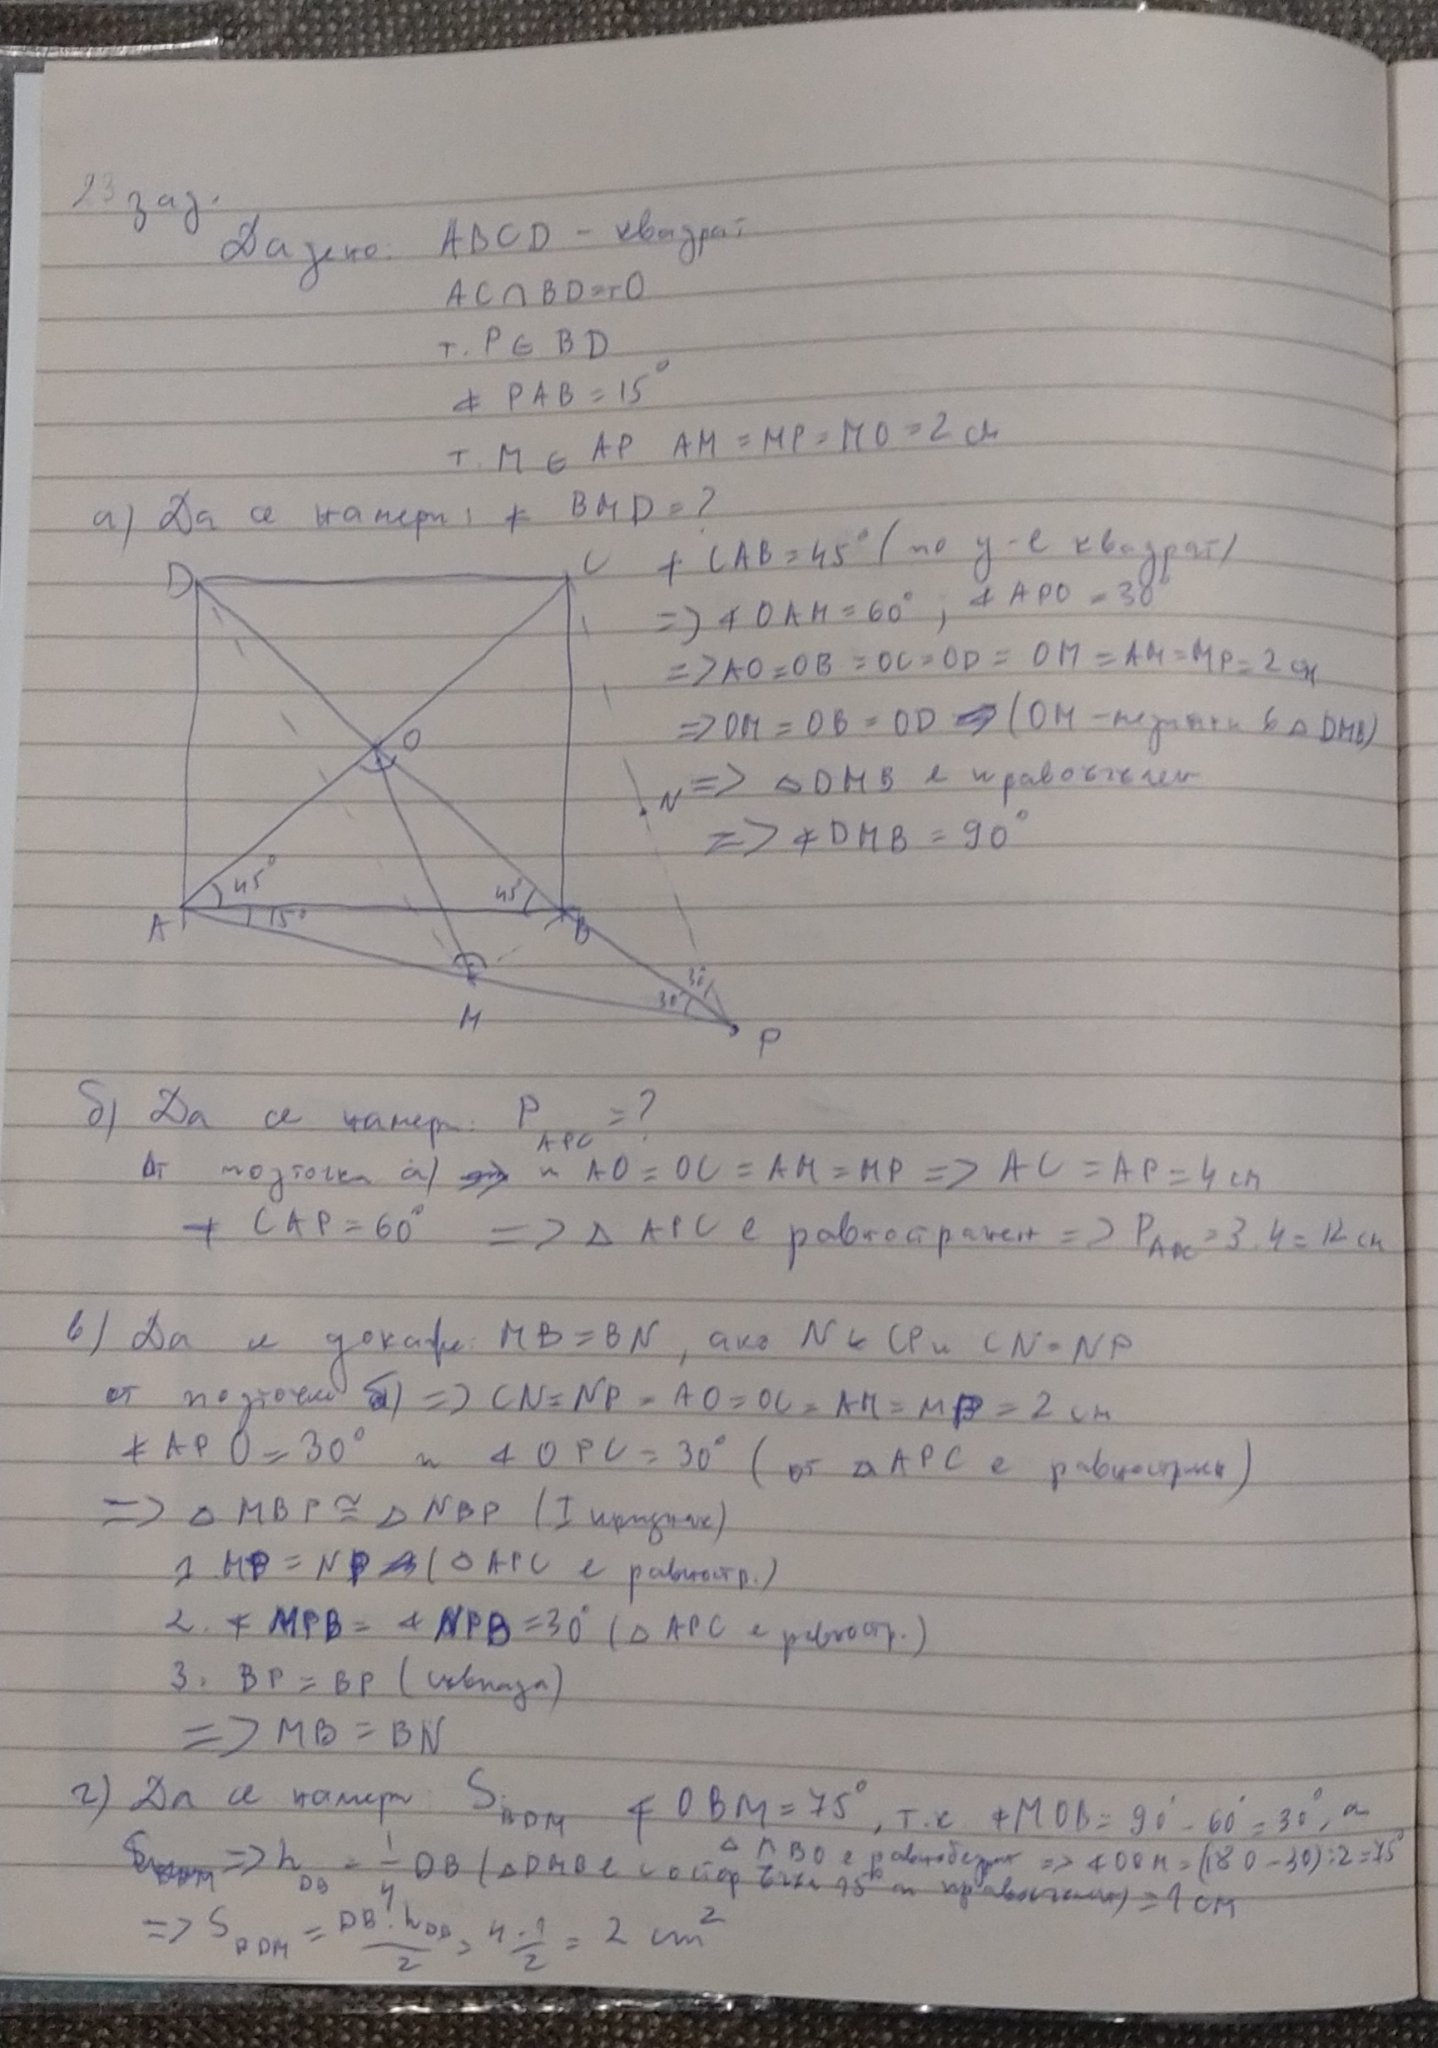 23 зад.
Дадено: ABCD - квадрат
AC ∩ BD = т. O
т. P ∈ BD
∢ PAB = 15°
т. M ∈ AP AM = MP = MO = 2 см
а) Да се намери: ∢ BMD = ?
D C
∢ CAB = 45° (по у-е квадрат)
=> ∢ OAM = 60°, ∢ APO = 30°
=> AO = OB = OC = OD = OM = AM = MP = 2 см
O
=> OM = OB = OD (OM - медиана в △ DMB)
N
=> △ DMB е правоъгълен
=> ∢ DMB = 90°
45° 45°
A 15° B
30°
30°
M P
б) Да се намери: P APC = ?
От подточка а) и AO = OC = AM = MP => AC = AP = 4 см
∢ CAP = 60° => △ APC е равностранен => P APC = 3.4 = 12 см
в) Да се докаже: MB = BN, ако N ∈ CP и CN = NP
от подточка б) => CN = NP = AO = OC = AM = MP = 2 см
∢ APO = 30° и ∢ OPC = 30° (от △ APC е равностранен)
=> △ MBP ≅ △ NBP (I признак)
1. MP = NP (△ APC е равностр.)
2. ∢ MPB = ∢ NPB = 30° (△ APC е равностр.)
3. BP = BP (съвпада)
=> MB = BN
г) Да се намери: S BDM ∢ OBM = 75°, т.к. ∢ MOB = 90° - 60° = 30°, а
△ MBO е равнобедрен => ∢ OBM = (180 - 30) : 2 = 75°
=> h DB = 1/4 DB (△ DMB е с остър ъгъл 15° и правоъгълен) = 1 см
=> S BDM = DB . h DB / 2 = 4 . 1 / 2 = 2 cm²